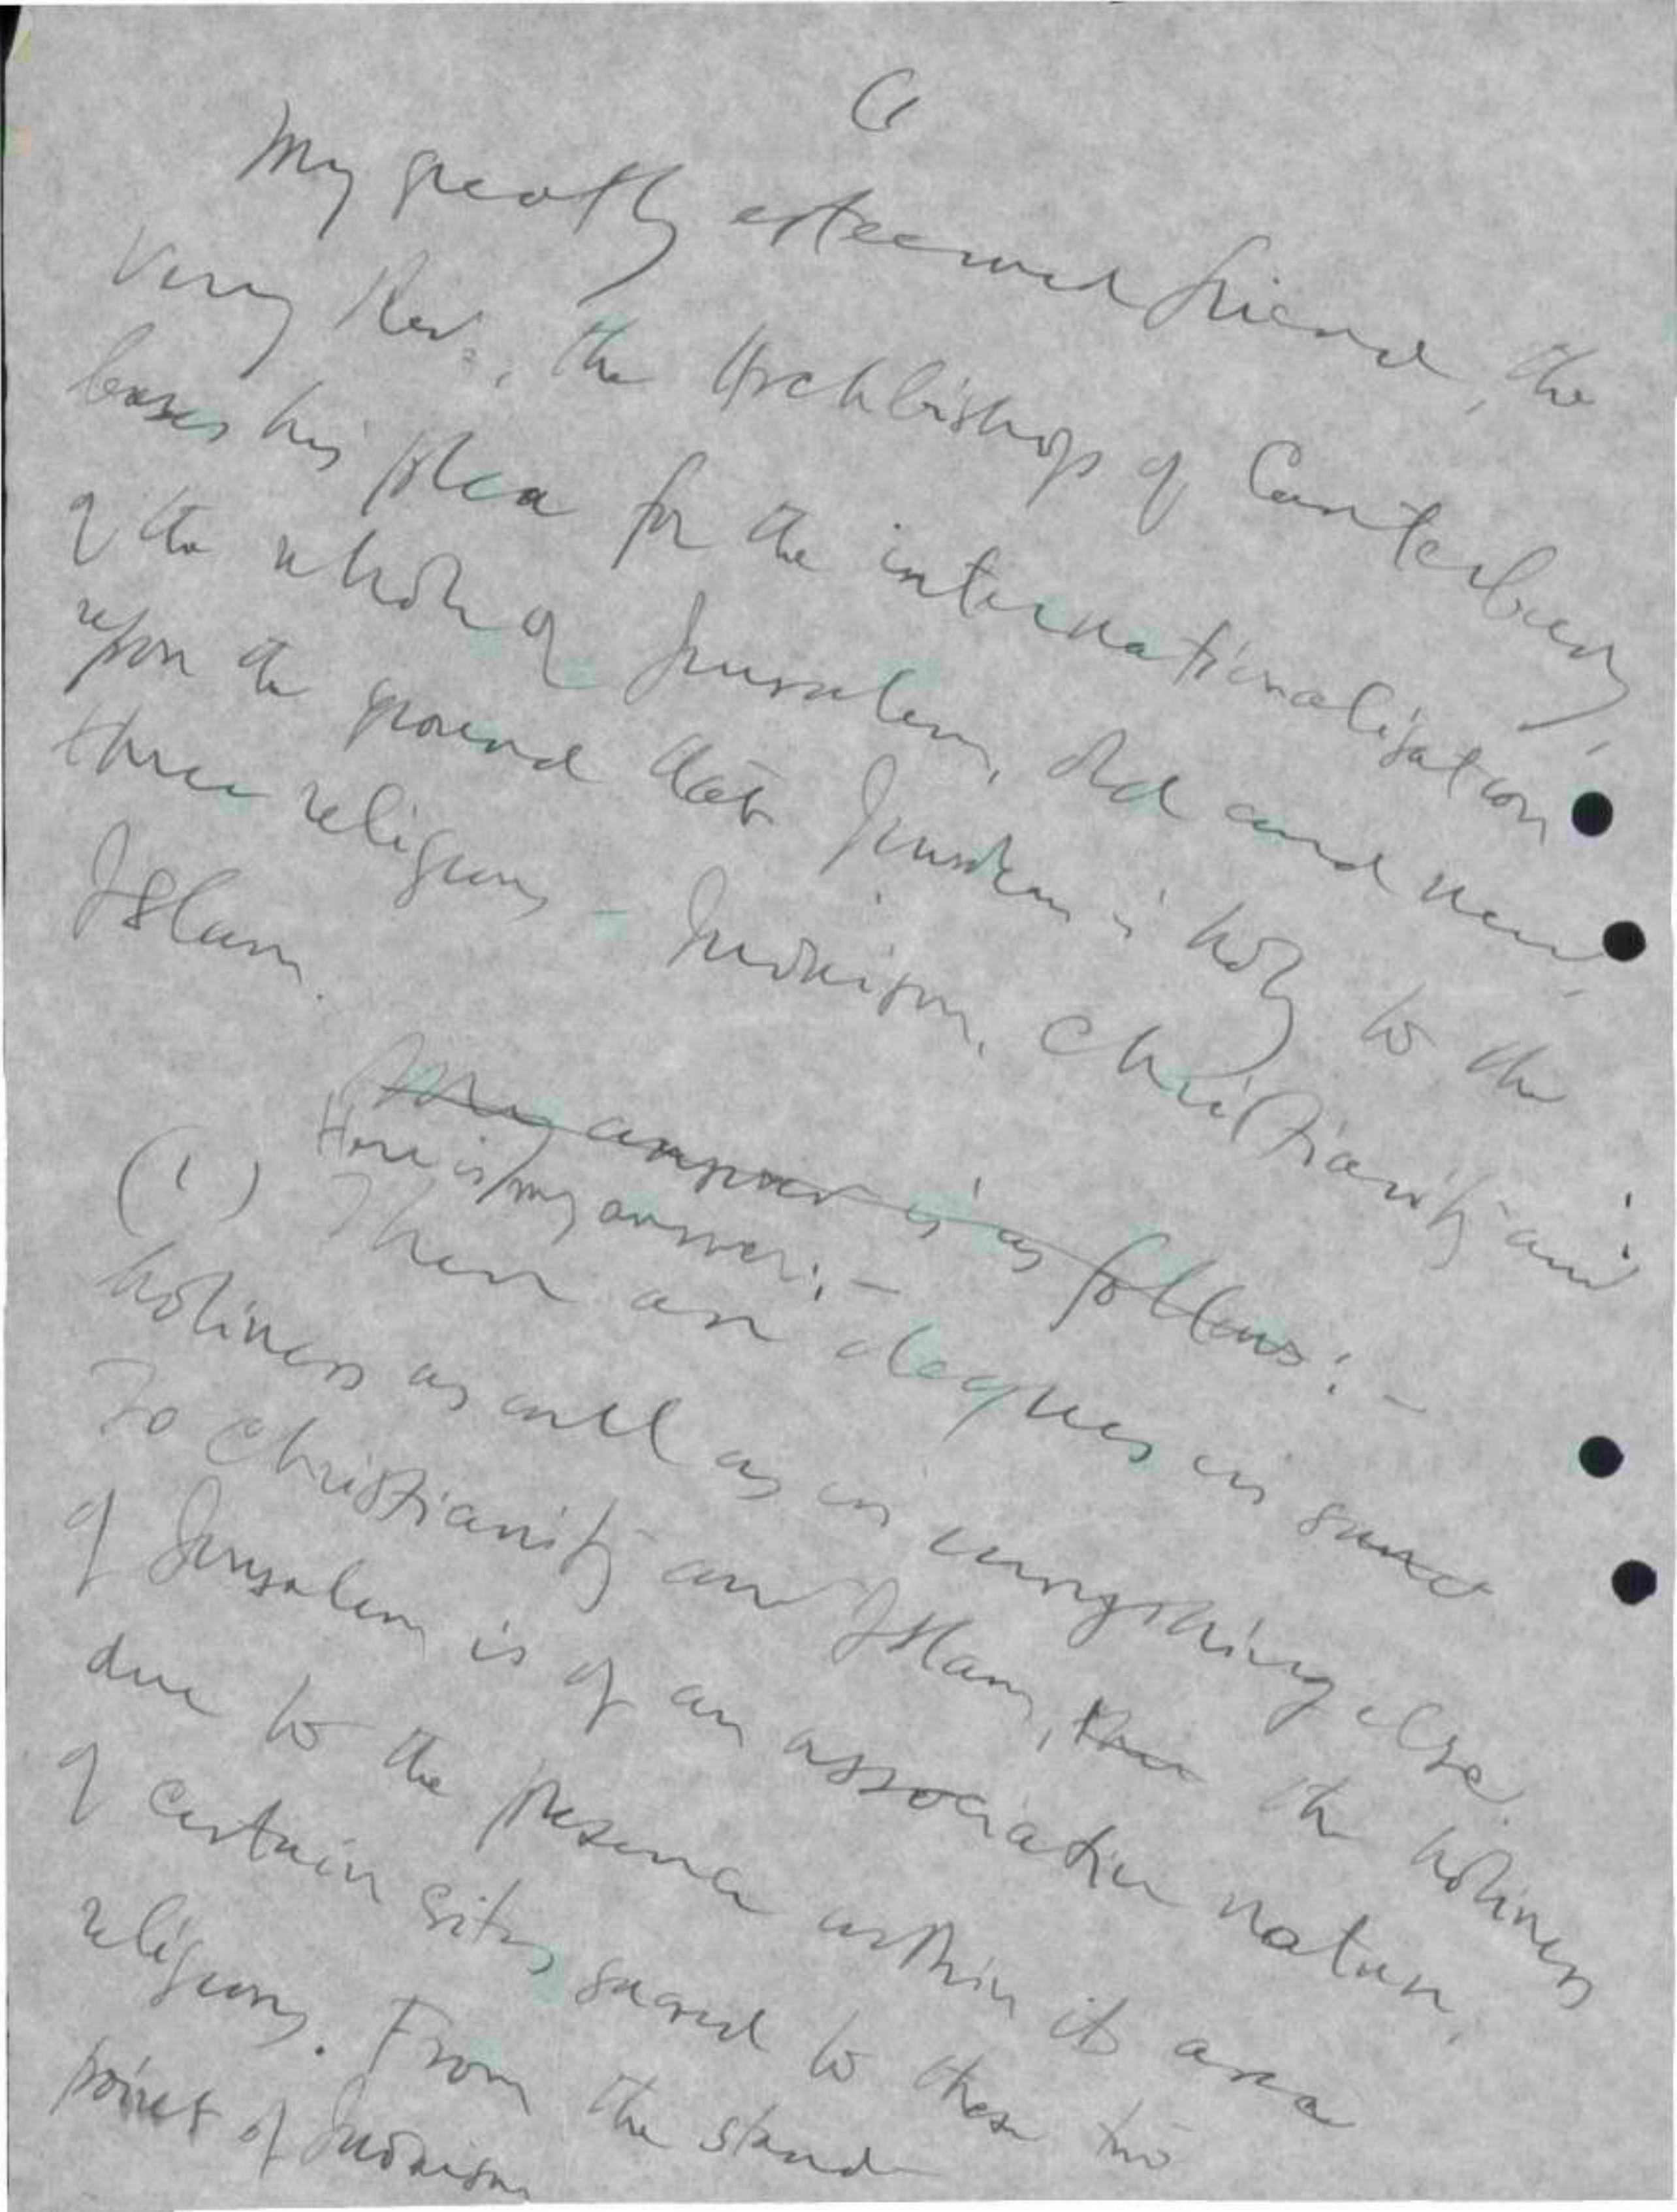 My greatly esteemed friend, the
Very Rev., the Archbishop of Canterbury,
bases his plea for the internationalisation
of the whole of Jerusalem, old and new,
upon the ground that Jerusalem is holy to the
three religions - Judaism, Christianity and
Islam.
My answer is as follows: -
Here is my answer: -
(1) There are degrees in
holiness as well as in everything else.
To Christianity and Islam, the holiness
of Jerusalem is of an associative nature,
due to the presence within its area
of certain sites sacred to these two
religions. From the stand
point of Judaism